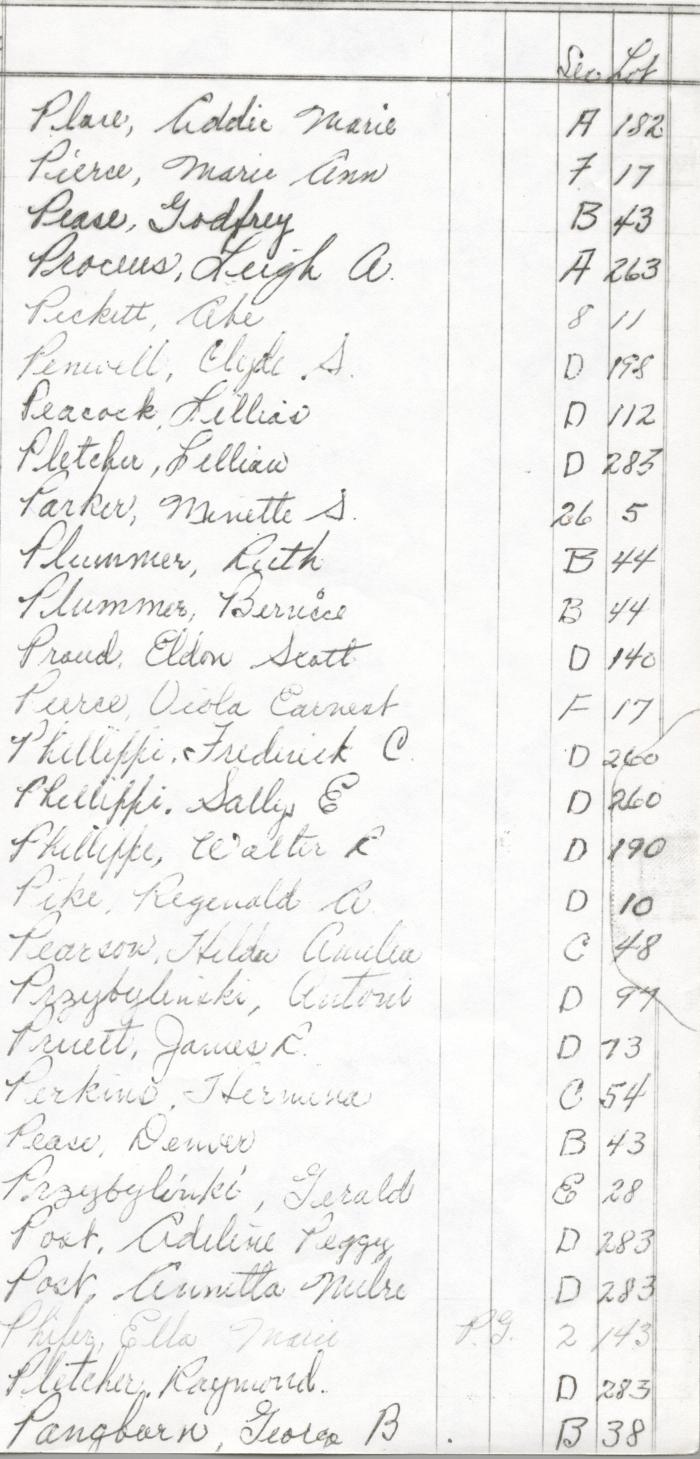 Sec. Lot
Plare, Addie Marie A 182
Pierce, Marie Ann F 17
Pease, Godfrey B 43
Procius, Leigh A. A 263
Pickett, Abe 8 11
Penwell, Clyde S. D 198
Peacock, Lillias D 112
Pletcher, Lillian D 283
Parker, Minette S. 26 5
Plummer, Ruth B 44
Plummer, Bernice B 44
Proud, Eldon Scott D 140
Pierce, Viola Earnest F 17
Phillippi, Frederick C. D 260
Phillippi, Sally E D 260
Phillippi, Walter R D 190
Pike, Reginald A D 10
Pearson, Hilda Amelia C 48
Przybylinski, Antoni D 97
Pruett, James R. D 73
Perkins, Hermina C 54
Pease, Denver B 43
Przybylinki, Gerald E 28
Post, Adeline Peggy D 283
Post, Annetta D 283
Phifer, Ella Marie P.G. 2 143
Pletcher, Raymond. D 283
Pangborn, George B B 38